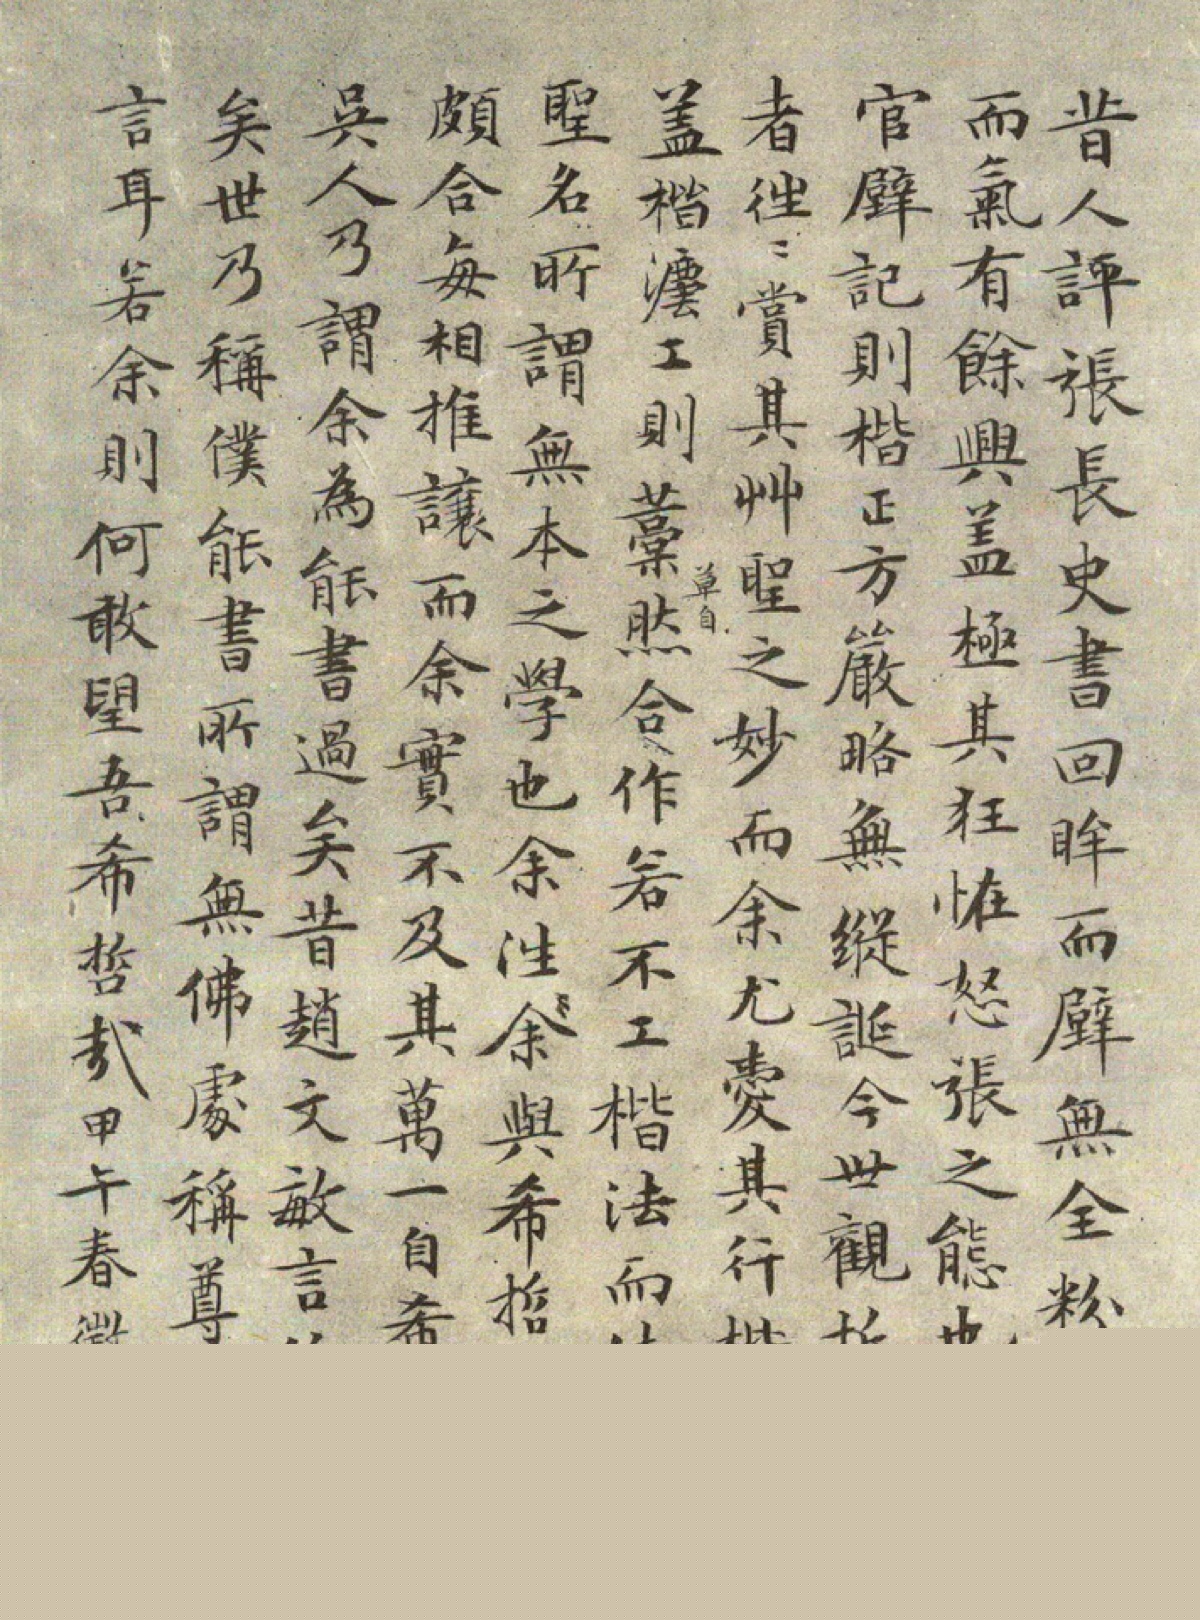 昔人評張長史書回眸而壁無全粉
而氣有餘興盖極其狂怪怒張之態也
官壁記則楷正方嚴略無縱誕今世觀
者徃〻賞其艸聖之妙而余尤愛其行楷
盖楷灋工則藁草自然合作若不工楷法而
聖名所謂無本之學也余徃余〻與希哲
頗合每相推讓而余實不及其萬一自希
吳人乃謂余為能書過矣昔趙文敏言
矣世乃稱僕能書所謂無佛處稱尊
言耳若余則何敢望吾希哲哉甲午春徵